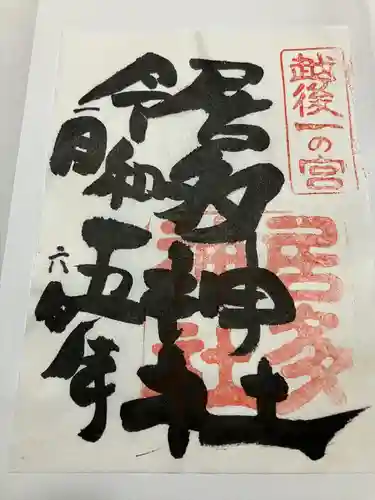 越後一の宮
居多
神社
居多神社
令和五年
二月六日